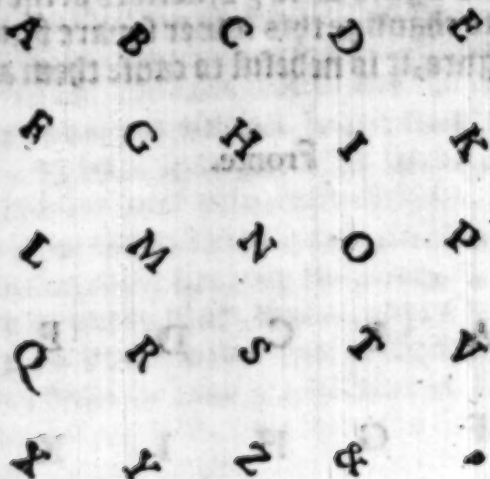 A B C D E
F G H I K
L M N O P
Q R S T V
X Y Z & .